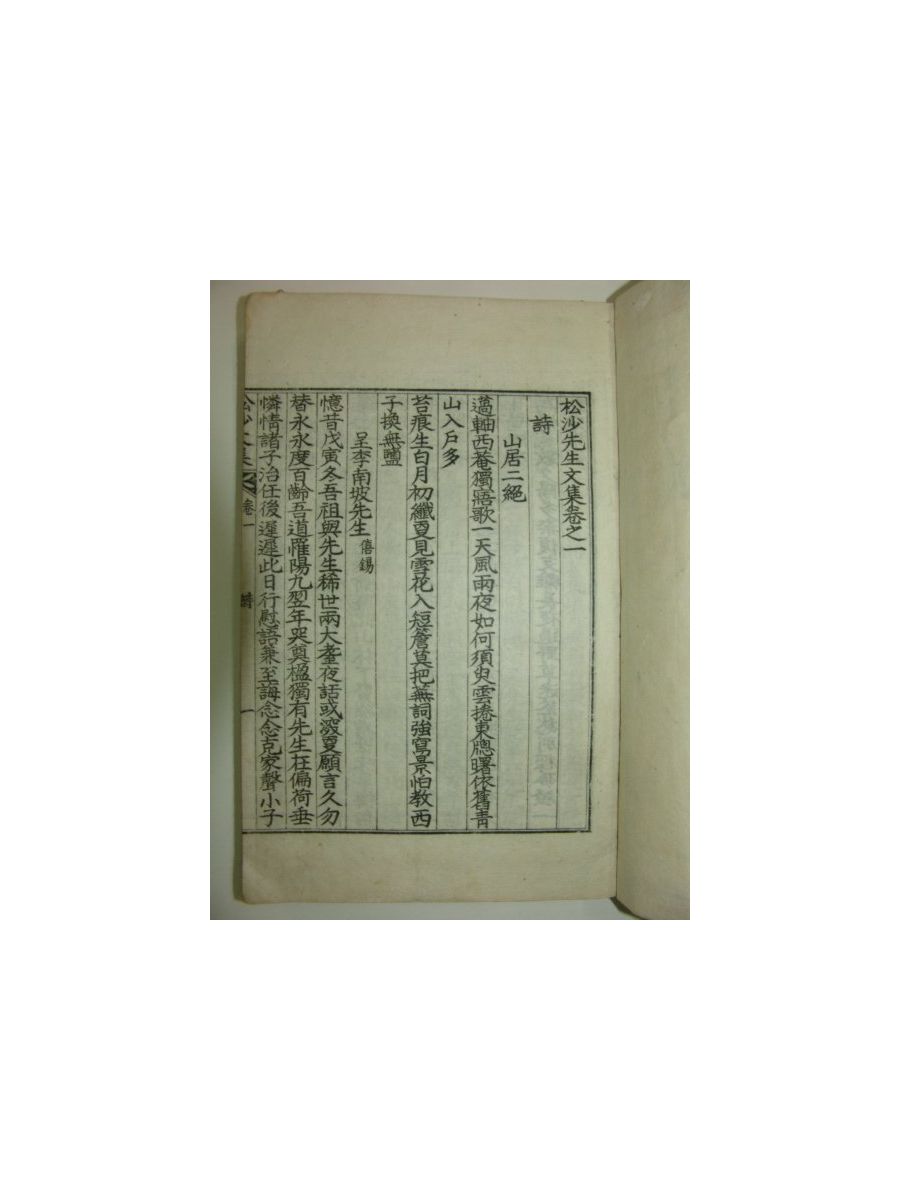 松沙先生文集卷之一
詩
山居二絕
薖軸西菴獨寤歌一天風雨夜如何須臾雲捲東牕曙依舊靑
山入戶多
苔痕生白月初纖夏見雪花入短簷莫把蕪詞強寫景怕教西
子換無鹽
呈李南坡先生 僖錫
憶昔戊寅冬吾祖與先生稀世兩大耋夜話或深更願言久勿
替永永度百齡吾道罹陽九翌年哭奠楹獨有先生在偏荷垂
憐情諸子治任後遲遲此日行慰語兼至誨念念克家聲小子
松沙文集 卷一 詩 一